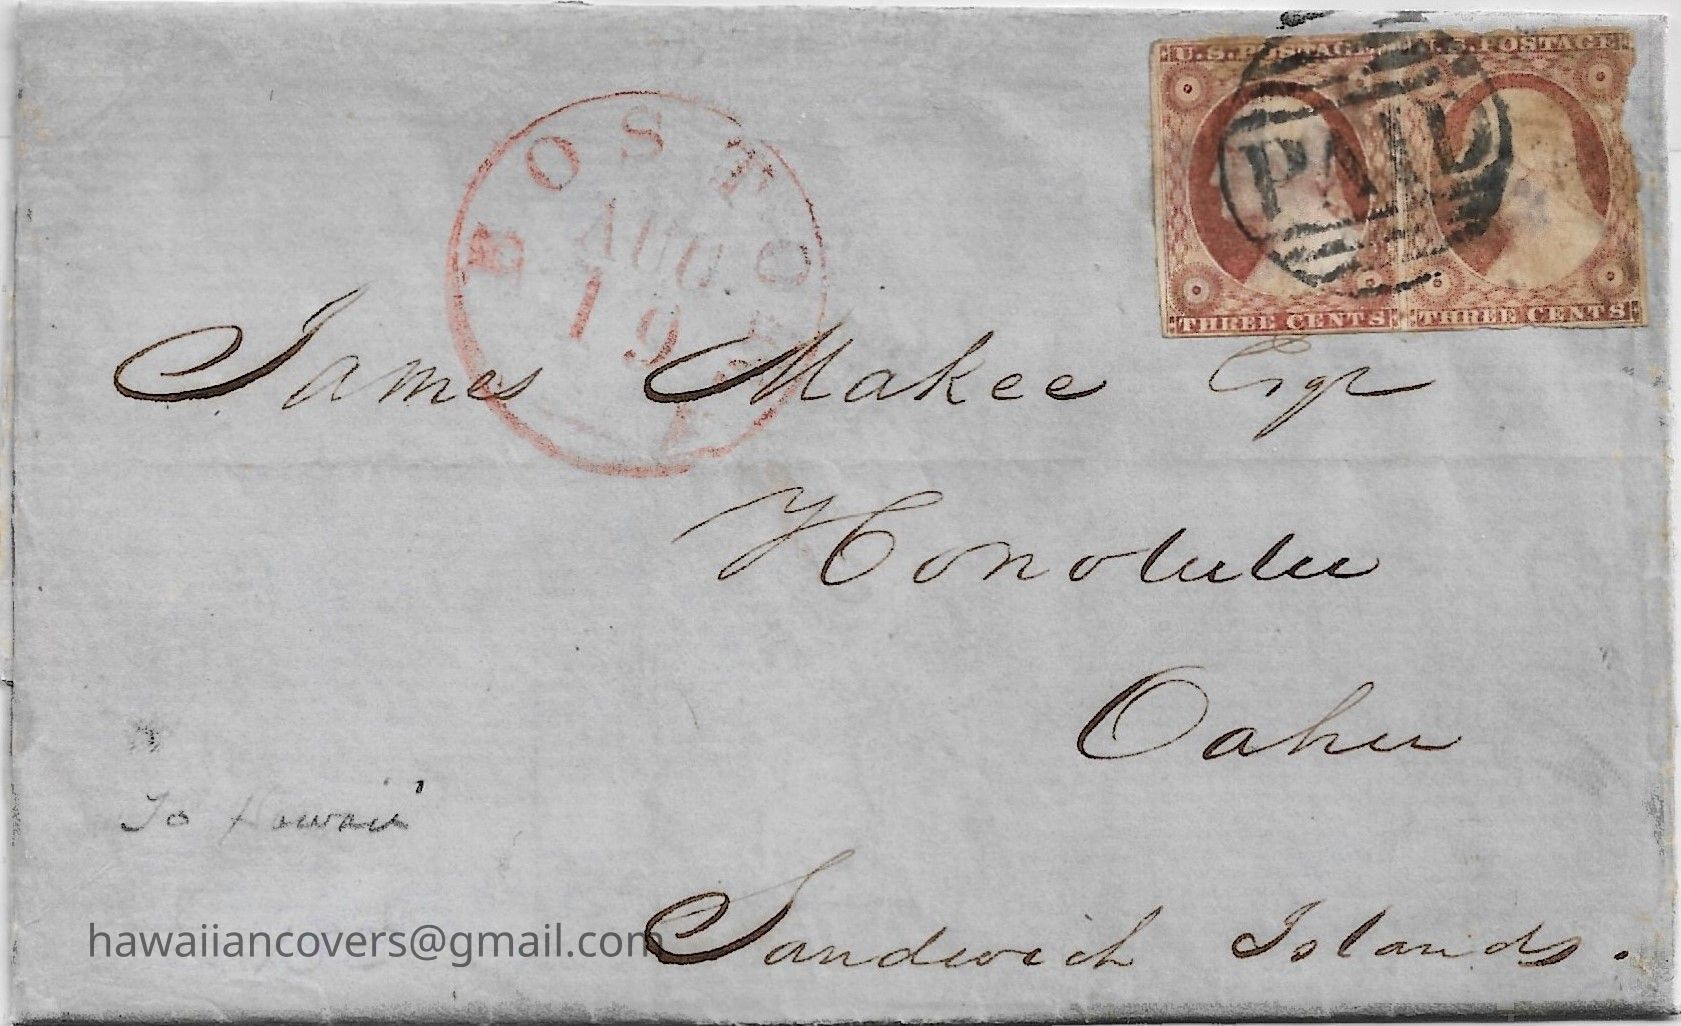 U.S. POSTAGE U.S. POSTAGE
PAID
THREE CENTS THREE CENTS
BOSTON
AUG
19
James Makee Esqr
Honolulu
Oahu
Sandwich Islands.
To Hawaii
hawaiiancovers@gmail.com